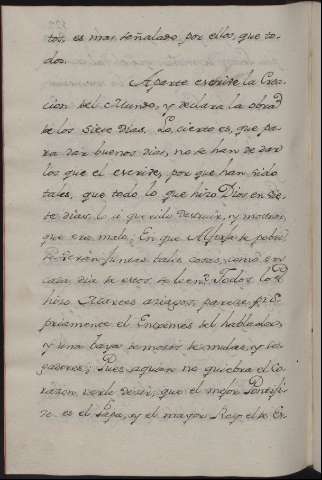 tos, es mas señalado por ellos, que to-
dos.
Aparte escrive la Crea-
cion del Mundo, y declara la obra
de los siete dias. Lo cierto es, que pa-
ra dar buenos dias, no se han de dar
los que el escrive, porque han sido
tales, que todo lo que hizo Dios en sie-
te dias, lo à querido destruir, y mostrar,
que era malo. En que Alforja se
juntas tales cosas, como en
cada dia de estos se leen? Todos los
hizo Martes aziagos, parece pro-
priamente el Entremes del hablador,
y una de mozos de mulas, y se-
gadores; Pues aquien no quiebra el Co-
razon verle decir, que el mejor Pontifi-
ce es el Papa, y el mayor Rey el de Es-